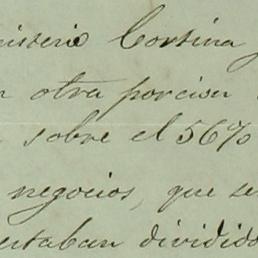 nisterio Cortina y
n otra porcion
sobre el 56%
negocios, que se
ertaban dividido